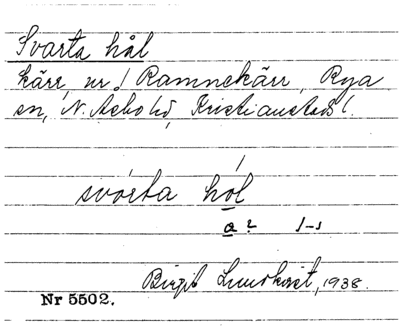 Svarta hål
kärr, nr. / Ramnekärr, Rya
sn, N. Åsbo hd, Kristianstads l.
svárta hól
a ? /-ı
Birgit Lundkvist, 1938.
Nr 5502.